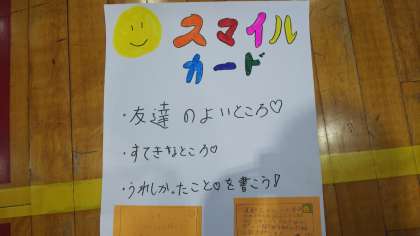 スマイル
カード
・友達のよいところ♡
・すてきなところ♡
・うれしかったこと♡を書こう!